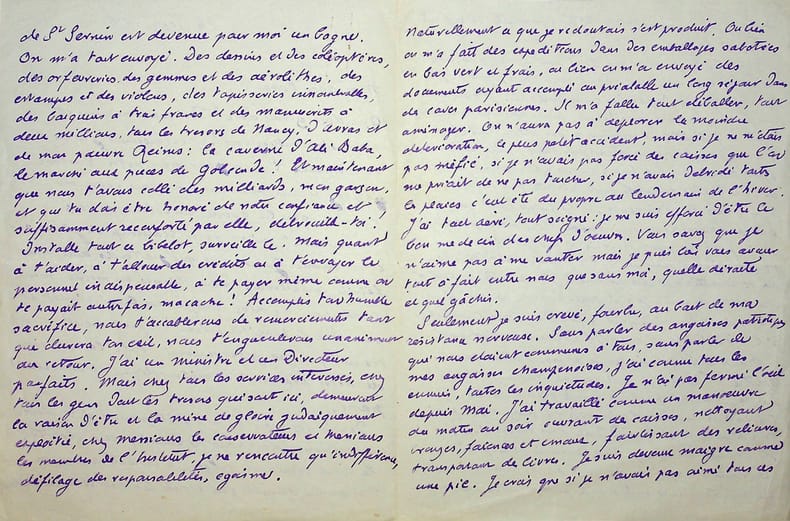 de St Sernin est devenue pour moi un bagne.
On m'a tout envoyé. Des dessins et des coléoptères,
des orfèvreries des gemmes et des aérolithes, des
estampes et des violons, des tapisseries innombrables,
des bouquins à trois francs et des manuscrits à
deux millions, tous les trésors de Nancy, d'Arras et
de mon pauvre Reims: la caverne d'Ali Baba,
le marché aux puces de Golconde! Et maintenant
que nous t'avons collé des milliards, mon garçon,
et que tu dois être honoré de notre confiance et,
suffisamment réconforté par elle, débrouille-toi.
Installe tout ce bibelot, surveille le. Mais quant
à t'aider, à t'allouer des crédits ou à t'envoyer le
personnel indispensable, à te payer même comme on
te payait autrefois, macache! Accomplis ton humble
sacrifice, nous t'accablerons de remerciements tant
que durera ton exil, nous t'engueulerons unanimement
au retour. J'ai un ministre et un Directeur
parfaits. Mais chez tous les services intéressés, chez
tous les gens dont les trésors qui sont ici, demeurent
la raison d'être et la mine de gloire judaïquement
exploitée, chez messieurs les conservateurs et messieurs
les membres de l'Institut, je ne rencontre qu'indifférence,
défilage des responsabilités, égoïsme.
Naturellement ce que je redoutais s'est produit. Ou bien
on m'a fait des expéditions dans des emballages sabotés
en bois vert et frais, ou bien on m'a envoyé des
documents ayant accompli au préalable un long séjour dans
des caves parisiennes. Il m'a fallu tout déballer, tout
aménager. On n'aura pas à déplorer la moindre
détérioration, le plus petit accident, mais si je ne m'étais
pas méfié, si je n'avais pas forcé des caisses que l'on
me priait de ne pas toucher, si je n'avais
les places c'eut été du propre au lendemain de l'hiver.
J'ai tout aéré, tout soigné: je me suis efforcé d'être le
bon médecin des chefs d'oeuvre. Vous savez que je
n'aime pas à me vanter mais je puis bien vous avouer
tout à fait entre nous que sans moi, quelle déroute
et quel gâchis.
Seulement je suis crevé, fourbu, au bout de ma
résistance nerveuse. Sans parler des angoisses patriotiques
qui nous étaient communes à tous, sans parler de
mes angoisses champenoises, j'ai connu tous les
ennuis, toutes les inquiétudes. Je n'ai pas fermé l'oeil
depuis Mai. J'ai travaillé comme un manoeuvre
du matin au soir ouvrant des caisses, nettoyant
vrayes, faïences et émaux, fourbissant des reliures,
transportant des livres. Je suis devenu maigre comme
une pie. Je crois que si je n'avais pas aimé tous ces